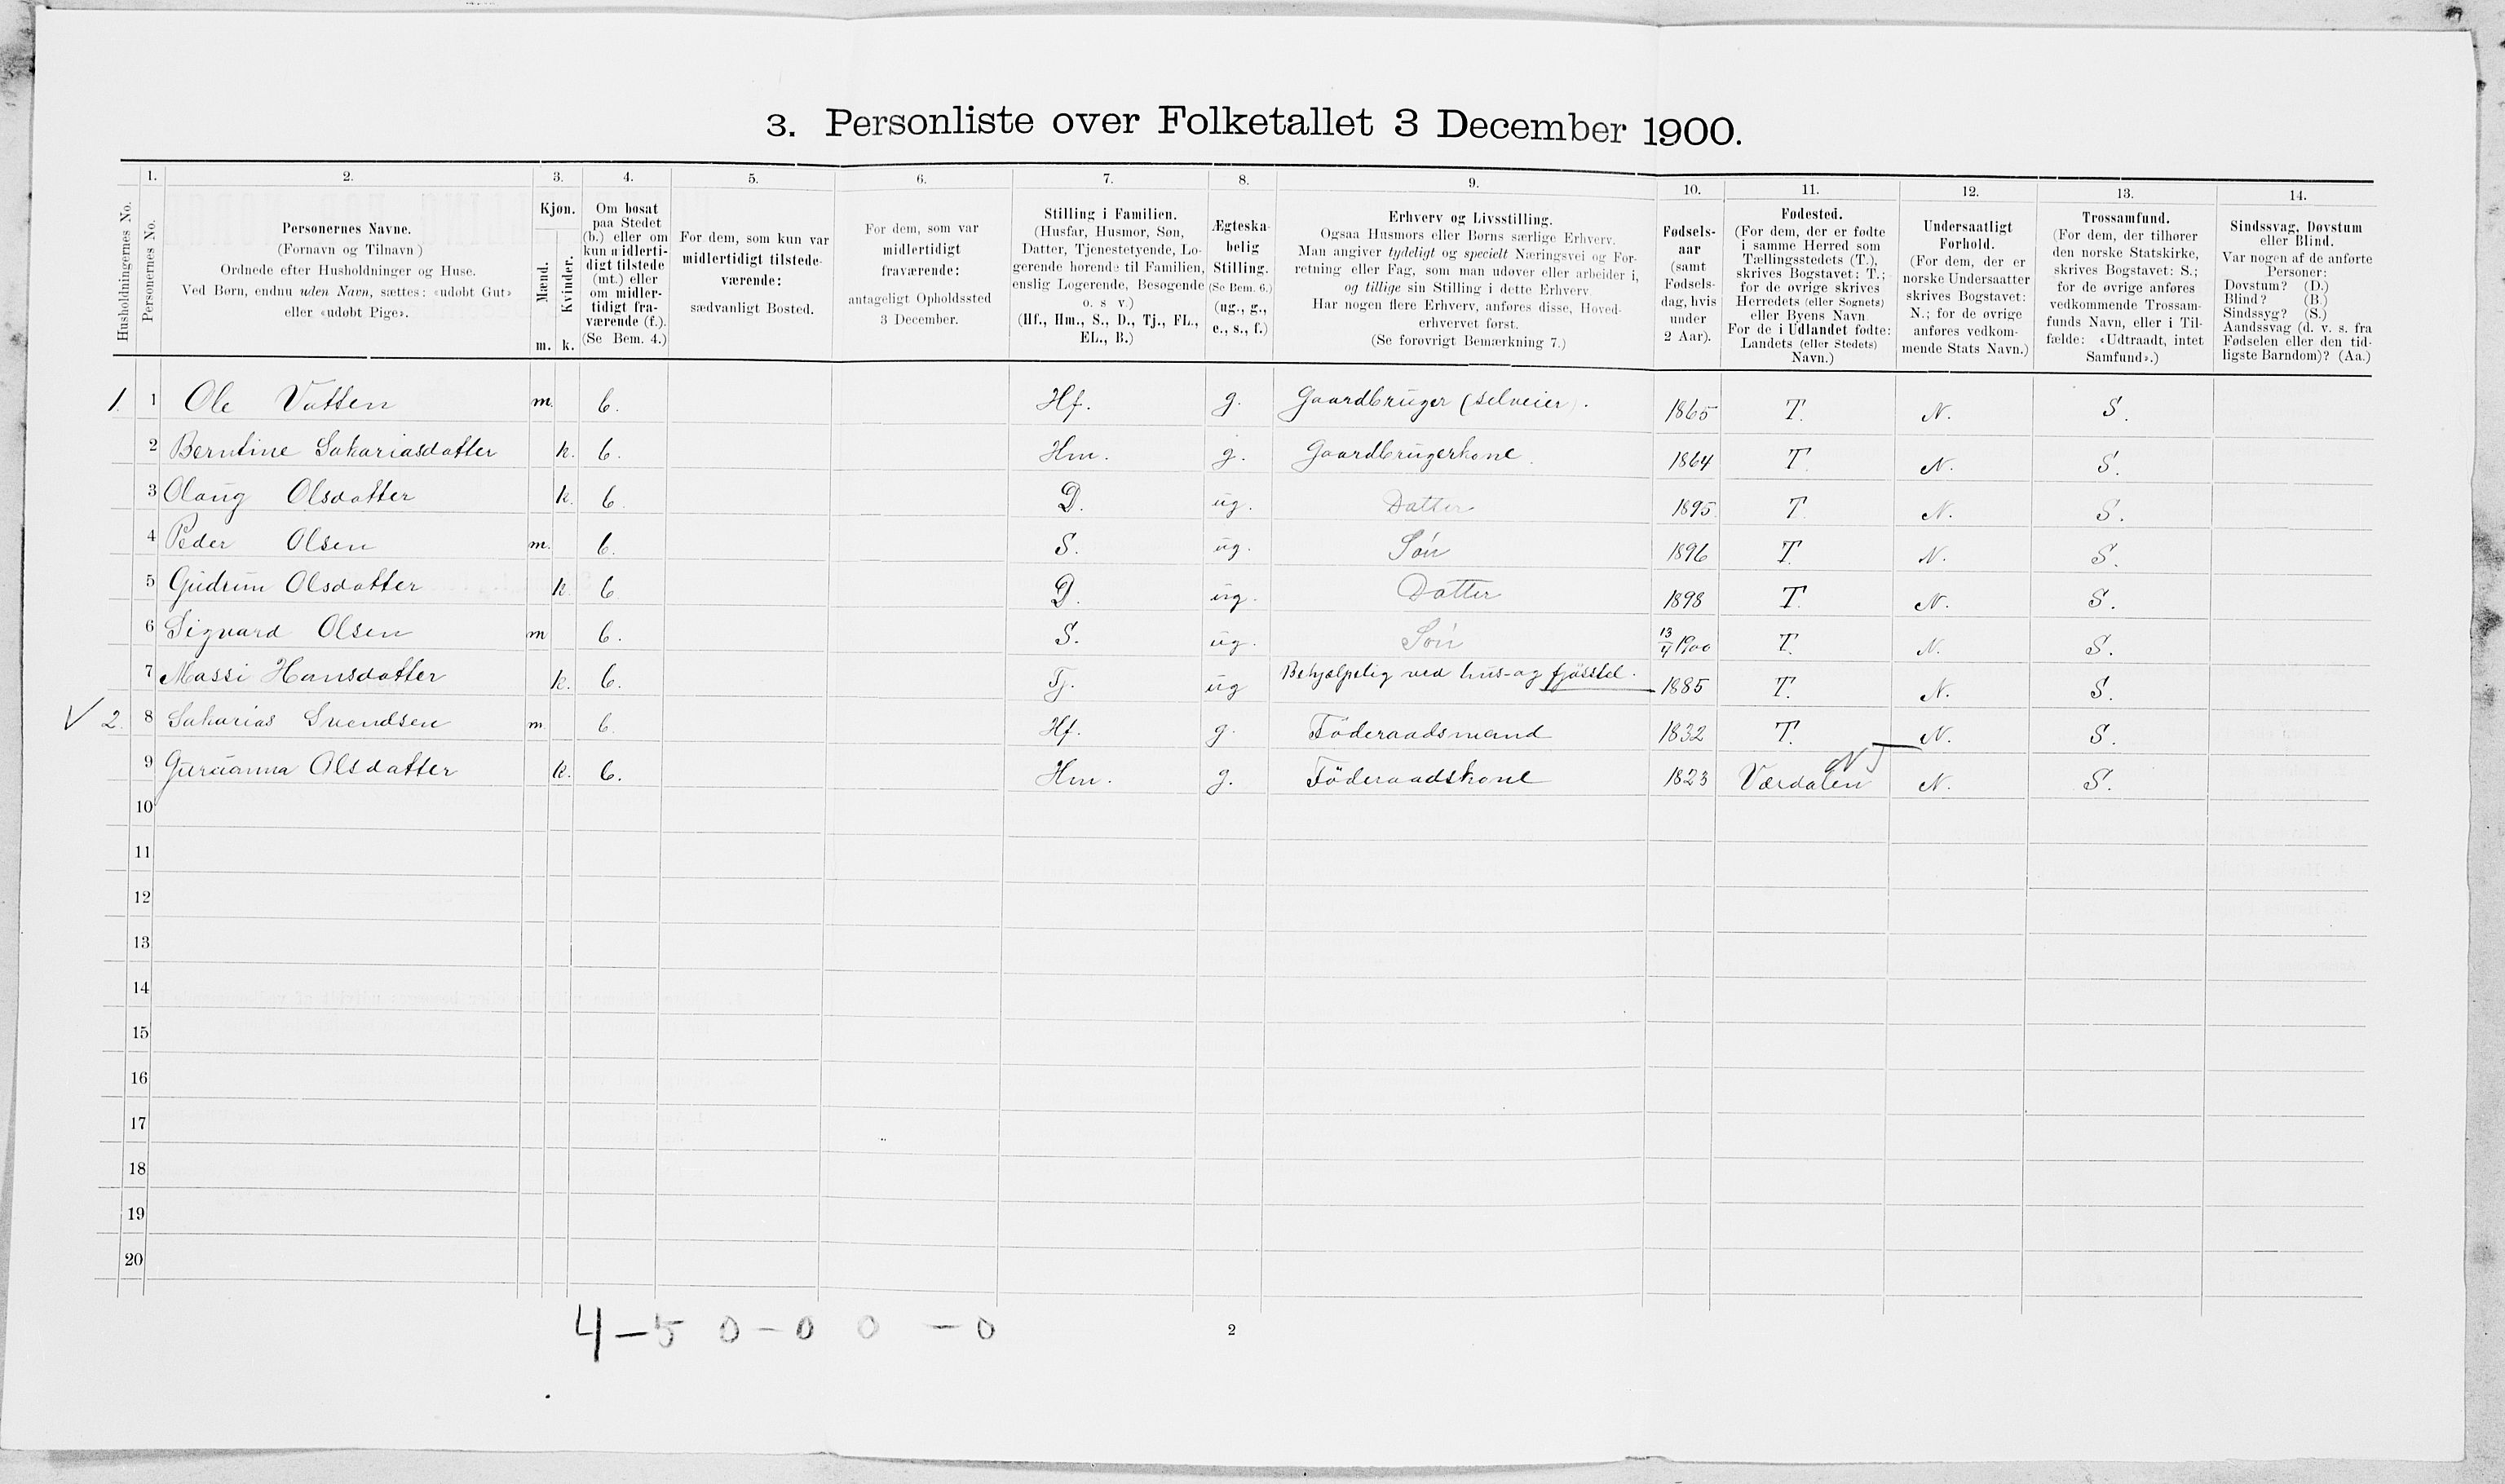 3. Personliste over Folketallet 3 December 1900.
1. 2. 3. 4. 5. 6. 7. 8. 9. 10. 11. 12. 13. 14.
Husholdningernes No.
Personernes No.
Personernes Navne.
(Fornavn og Tilnavn)
Ordnede efter Husholdninger og Huse.
Ved Børn, endnu uden Navn, sættes: «udøbt Gut»
eller «udøbt Pige».
Kjøn.
Mænd.
Kvinder.
m. k.
Om bosat
paa Stedet
(b.) eller om
kun midlerti-
digt tilstede
(mt.) eller
om midler-
tidigt fra-
værende (f.).
(Se Bem. 4.)
For dem, som kun var
midlertidigt tilstede-
værende:
sædvanligt Bosted.
For dem, som var
midlertidigt
fraværende:
antageligt Opholdssted
3 December.
Stilling i Familien.
(Husfar, Husmor, Søn,
Datter, Tjenestetyende, Lo-
gerende hørende til Familien,
enslig Logerende, Besøgende
o. s v.)
(Hf., Hm., S., D., Tj., FL.,
EL., B.)
Ægteska-
belig
Stilling.
(Se Bem. 6.)
(ug., g.,
e., s., f.)
Erhverv og Livsstilling.
Ogsaa Husmors eller Børns særlige Erhverv.
Man angiver tydeligt og specielt Næringsvei og For-
retning eller Fag, som man udøver eller arbeider i,
og tillige sin Stilling i dette Erhverv.
Har nogen flere Erhverv, anføres disse, Hoved-
erhvervet først.
(Se forøvrigt Bemærkning 7.)
Fødsels-
aar
(samt
Fødsels-
dag, hvis
under
2 Aar).
Fødested.
(For dem, der er fødte
i samme Herred som
Tællingsstedets (T.),
skrives Bogstavet: T.;
for de øvrige skrives
Herredets (eller Sognets)
eller Byens Navn.
For de i Udlandet fødte:
Landets (eller Stedets)
Navn.)
Undersaatligt
Forhold.
(For dem, der er
norske Undersaatter
skrives Bogstavet:
N.; for de øvrige
anføres vedkom-
mende Stats Navn.)
Trossamfund.
(For dem, der tilhører
den norske Statskirke,
skrives Bogstavet: S.;
for de øvrige anføres
vedkommende Trossam-
funds Navn, eller i Til-
fælde: «Udtraadt, intet
Samfund».)
Sindssvag, Døvstum
eller Blind.
Var nogen af de anførte
Personer:
Døvstum? (D.)
Blind? (B.)
Sindssyg? (S.)
Aandssvag (d. v. s. fra
Fødselen eller den tid-
ligste Barndom)? (Aa.)
1. 1 Ole Vatten m. b. Hf. g. Gaardbruger (selveier). 1865 T. N. S.
2 Berntine Sakariasdatter k. b. Hm. g. Gaardbrugerkone. 1864 T. N. S.
3 Olaug Olsdatter k. b. D. ug. Datter 1895. T. N. S.
4 Peder Olsen m. b. S. ug. Søn 1896 T. N. S.
5 Gudrun Olsdatter k. b. D. ug. Datter 1898 T. N. S.
6 Sigvard Olsen m b. S. ug. Søn 13/4 1900 T. N. S.
7 Massi Hansdatter k. b. Tj. ug Behjælpelig ved hus- og fjösstel. 1885 T. N. S.
2. 8 Sakarias Svendsen m b. Hf. g. Föderaadsmand 1832 T. N. S.
9 Olsdatter k. b. Hm. g. Föderaadskone 1823 Værdalen N. S.
NT
10
11
12
13
14
15
16
17
18
19
20
4 – 5 0 – 0 0 – 0
2